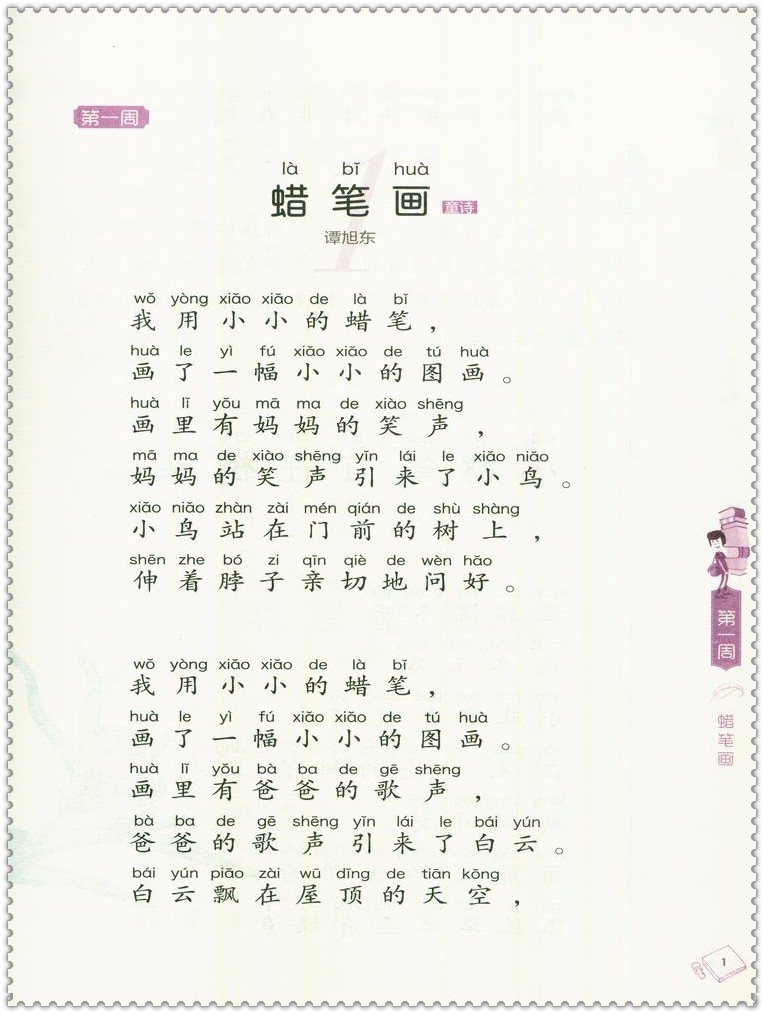 第一周
là bǐ huà
蜡笔画 童诗
谭旭东
wǒ yòng xiǎo xiǎo de là bǐ
我用小小的蜡笔，
huà le yì fú xiǎo xiǎo de tú huà
画了一幅小小的图画。
huà lǐ yǒu mā ma de xiào shēng
画里有妈妈的笑声，
mā ma de xiào shēng yǐn lái le xiǎo niǎo
妈妈的笑声引来了小鸟。
xiǎo niǎo zhàn zài mén qián de shù shàng
小鸟站在门前的树上，
shēn zhe bó zi qīn qiè de wèn hǎo
伸着脖子亲切地问好。
wǒ yòng xiǎo xiǎo de là bǐ
我用小小的蜡笔，
huà le yì fú xiǎo xiǎo de tú huà
画了一幅小小的图画。
huà lǐ yǒu bà ba de gē shēng
画里有爸爸的歌声，
bà ba de gē shēng yǐn lái le bái yún
爸爸的歌声引来了白云。
bái yún piāo zài wū dǐng de tiān kōng
白云飘在屋顶的天空，
第一周
蜡笔画
1